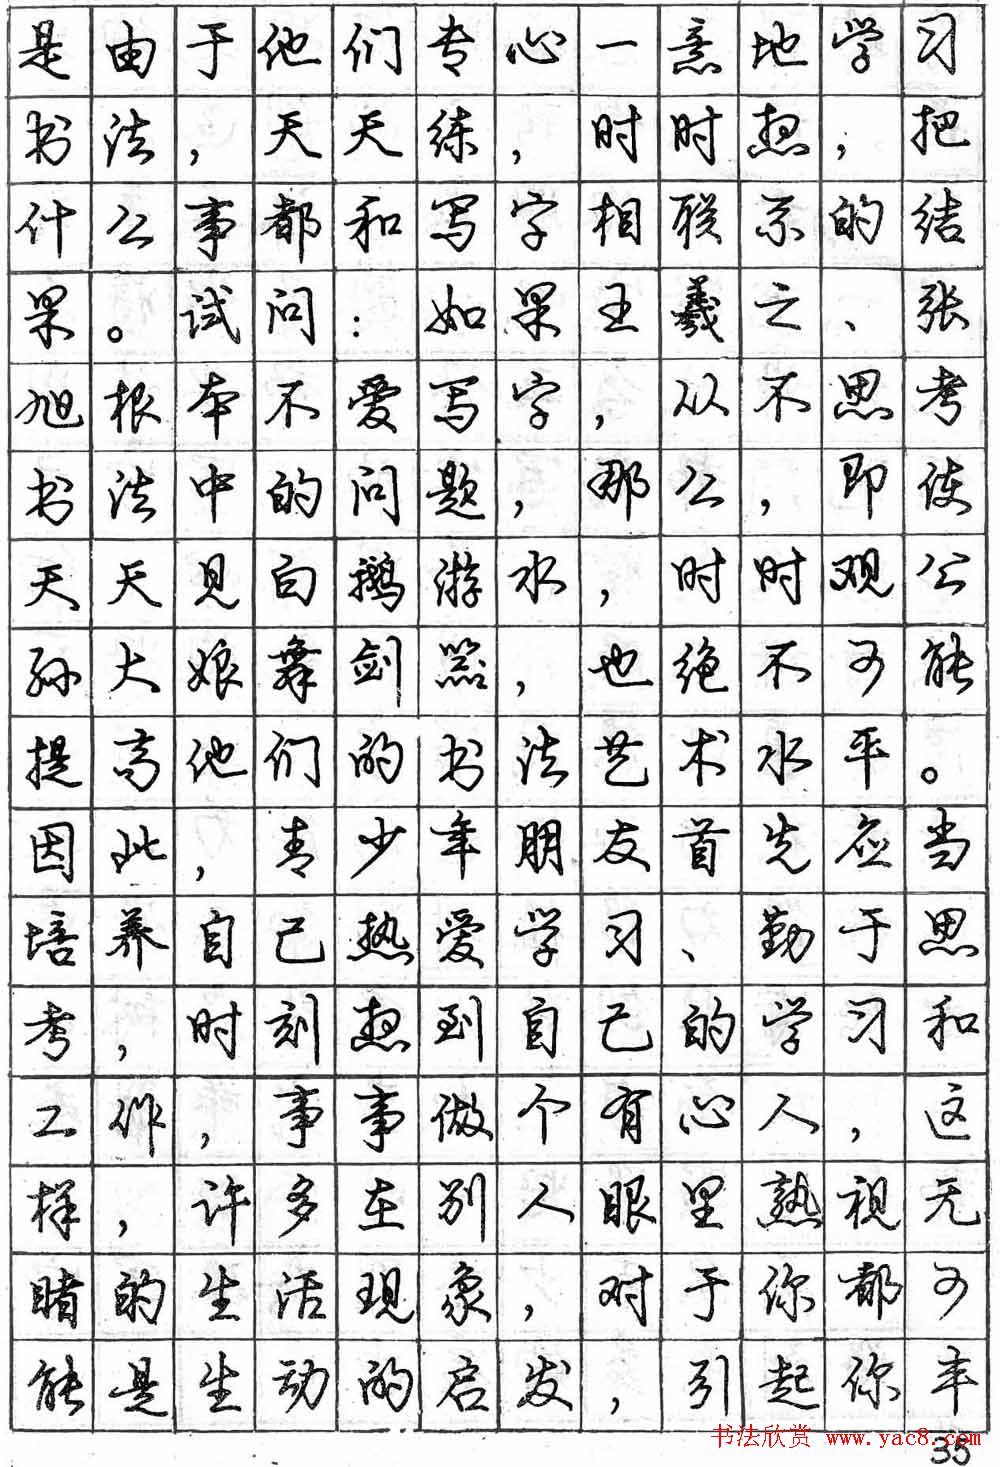 是由于他们专心一意地学习
书法，天天练，时时想，把
什么事都和写字相联系的结
果。试问：如果王羲之、张
旭根本不爱写字，从不思考
书法中的问题，那么，即使
天天见白鹅游水，时时观公
孙大娘舞剑器，也绝不可能
提高他们的书法艺术水平。
因此，青少年朋友首先应当
培养自己热爱学习、勤于思
考，时刻想到自己的学习和
工作，事事做个有心人，这
样，许多在别人眼里熟视无
睹的生活现象，对于你都可
能是生动的启发，引起你丰
书法欣赏 www.yac8.com
35